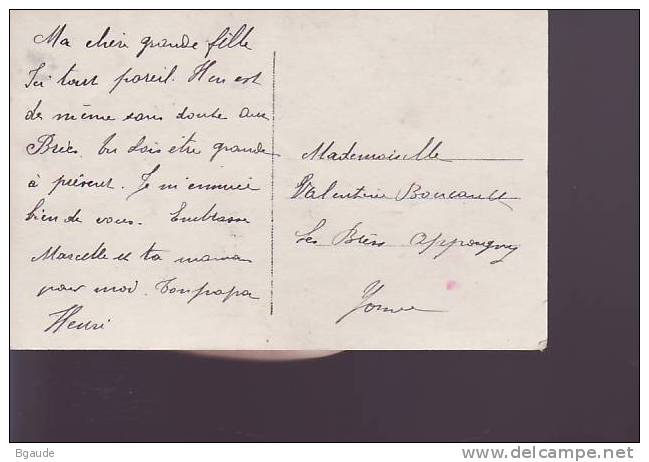 Ma chère grande fille
Ici tout pareil. Il en est
de même sans doute aux
Bries. tu dois être grande
à présent. Je m'ennuie
bien de vous. Embrasse
Marcelle et ta maman
pour moi. Ton papa
Henri
Mademoiselle
Valentine Boucault
Les Bries Appoigny
Yonne
Bgaude
www.delcampe.net